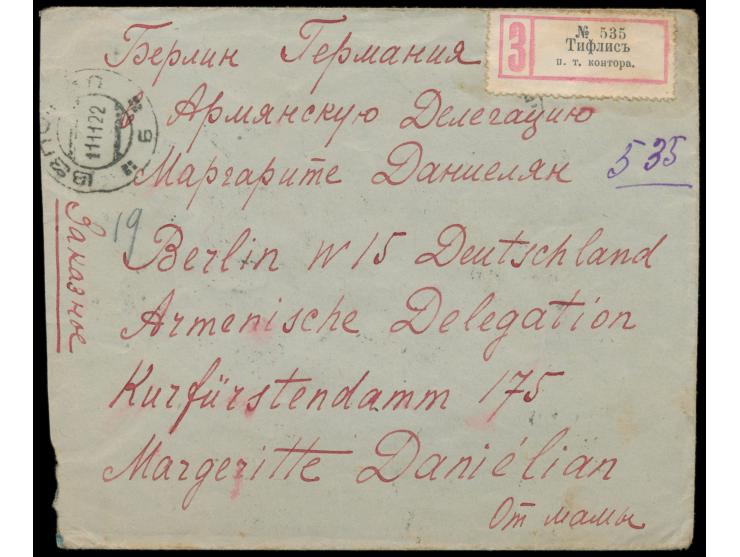 Берлин Германия
З
№ 535
Тифлисъ
п. т. контора.
Армянскую Делегацию
Маргарите Даниелян
535
11 11 22
Б
19
Заказное
Berlin W 15 Deutschland
Armenische Delegation
Kurfürstendamm 175
Margeritte Daniélian
От мамы